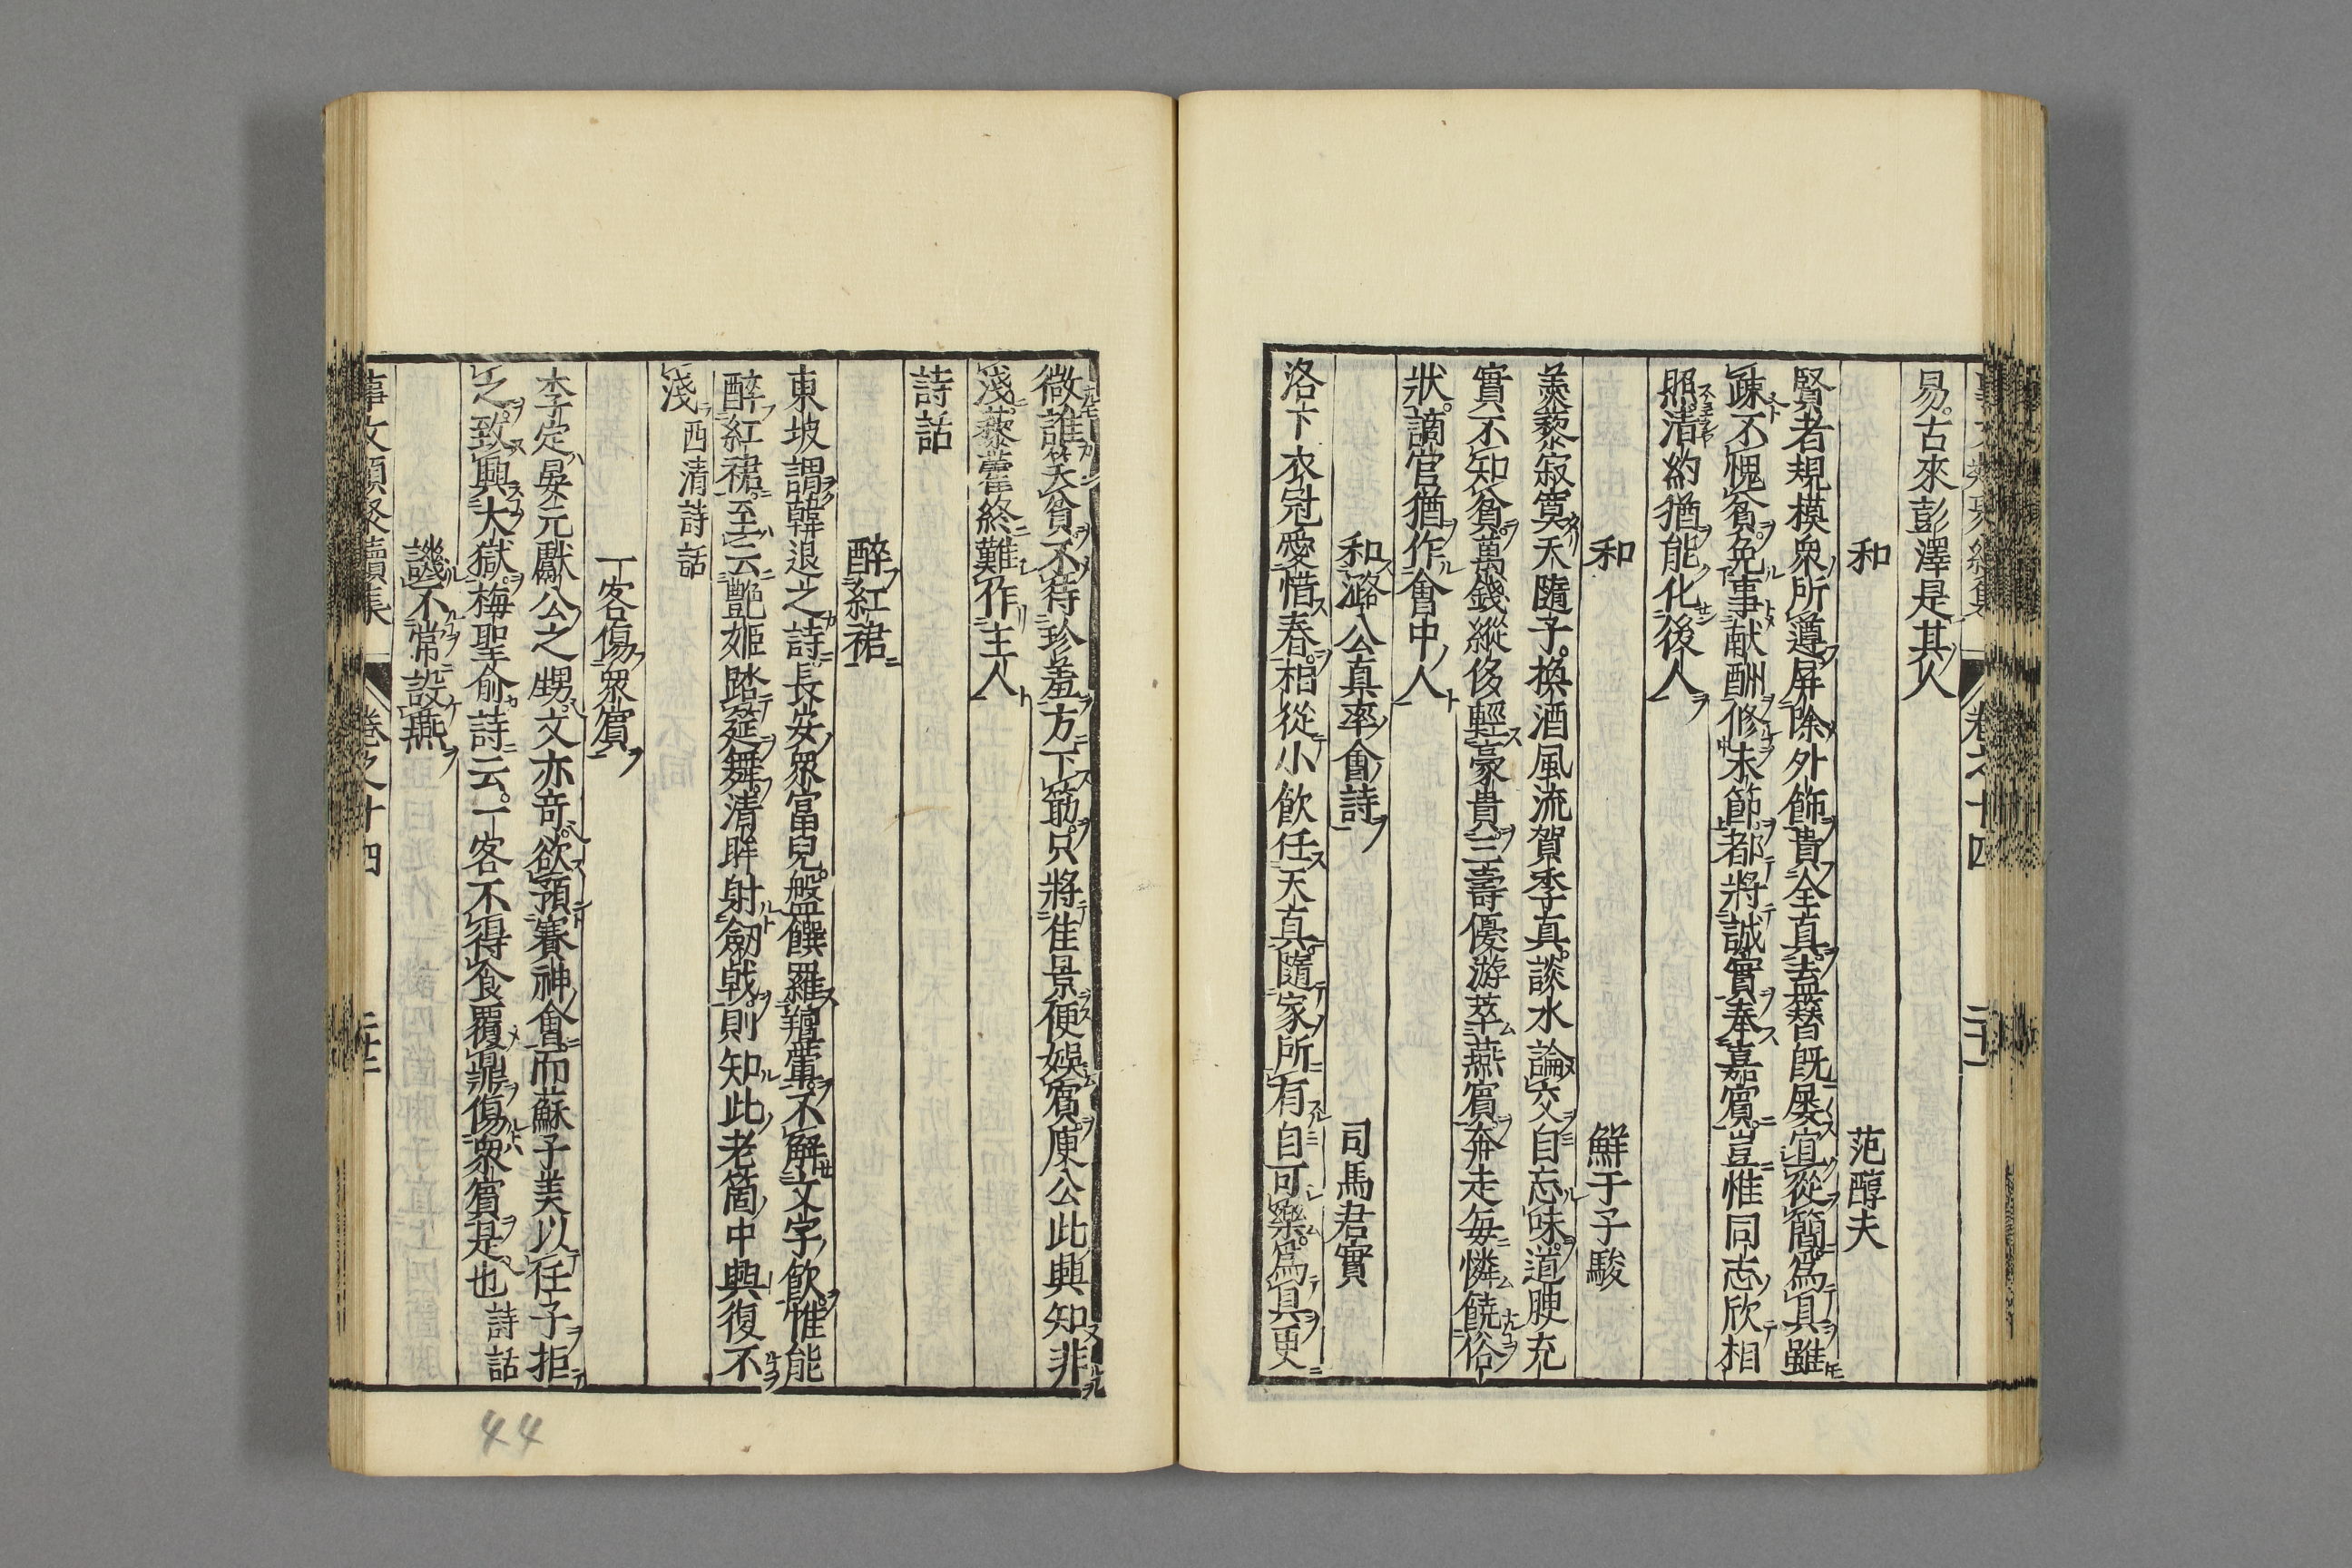 易古來彭澤是其人
和 范醇夫
賢者規模衆所遵屏除外飾貴全真盍簪既屡宜從簡爲具雖
疎不愧貧免事献酬修末節都將誠實奉嘉賓豈惟同志欣相
照清約猶能化後人
和 鮮于子駿
羨藜寂寞天隨子換酒風流賀季真談水論交自忘味道腴充
實不知貧萬錢縱侈輕豪貴三壽優游萃燕賓奔走每憐饒俗
狀謫官猶作會中人
和潞公真率會詩 司馬君實
洛下衣冠愛惜春相從小飲任天真隨家所有自可樂爲具更
微誰笑貧不待珍羞方下筯只將佳景便娯賓庾公此興知非
淺藜藿終難作主人
詩話
醉紅裙
東坡謂韓退之詩長安衆富兒盤饌羅羶葷不解文字飲惟能
醉紅裙至云艷姬踏筵舞清眸射劒戟則知此老箇中興復不
淺 西清詩話
一客傷衆賓
李定晏元獻公之甥文亦竒欲預賽神會而蘇子美以任子拒
之致興大獄梅聖俞詩云一客不得食覆鼎傷衆賓是也 詩話
譏不常設燕
事文類聚續集 卷之十四